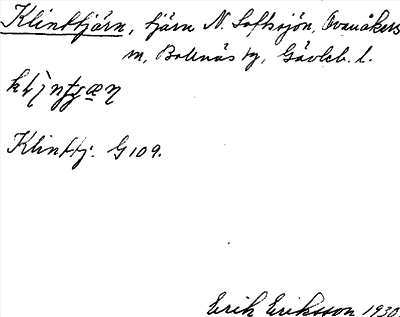 Klinttjärn, tjärn N. Loftssjön, Ovanåkers
sn, Bollnäs tg, Gävleb. l.
Klinttj. G 109.
Erik Eriksson 1930.